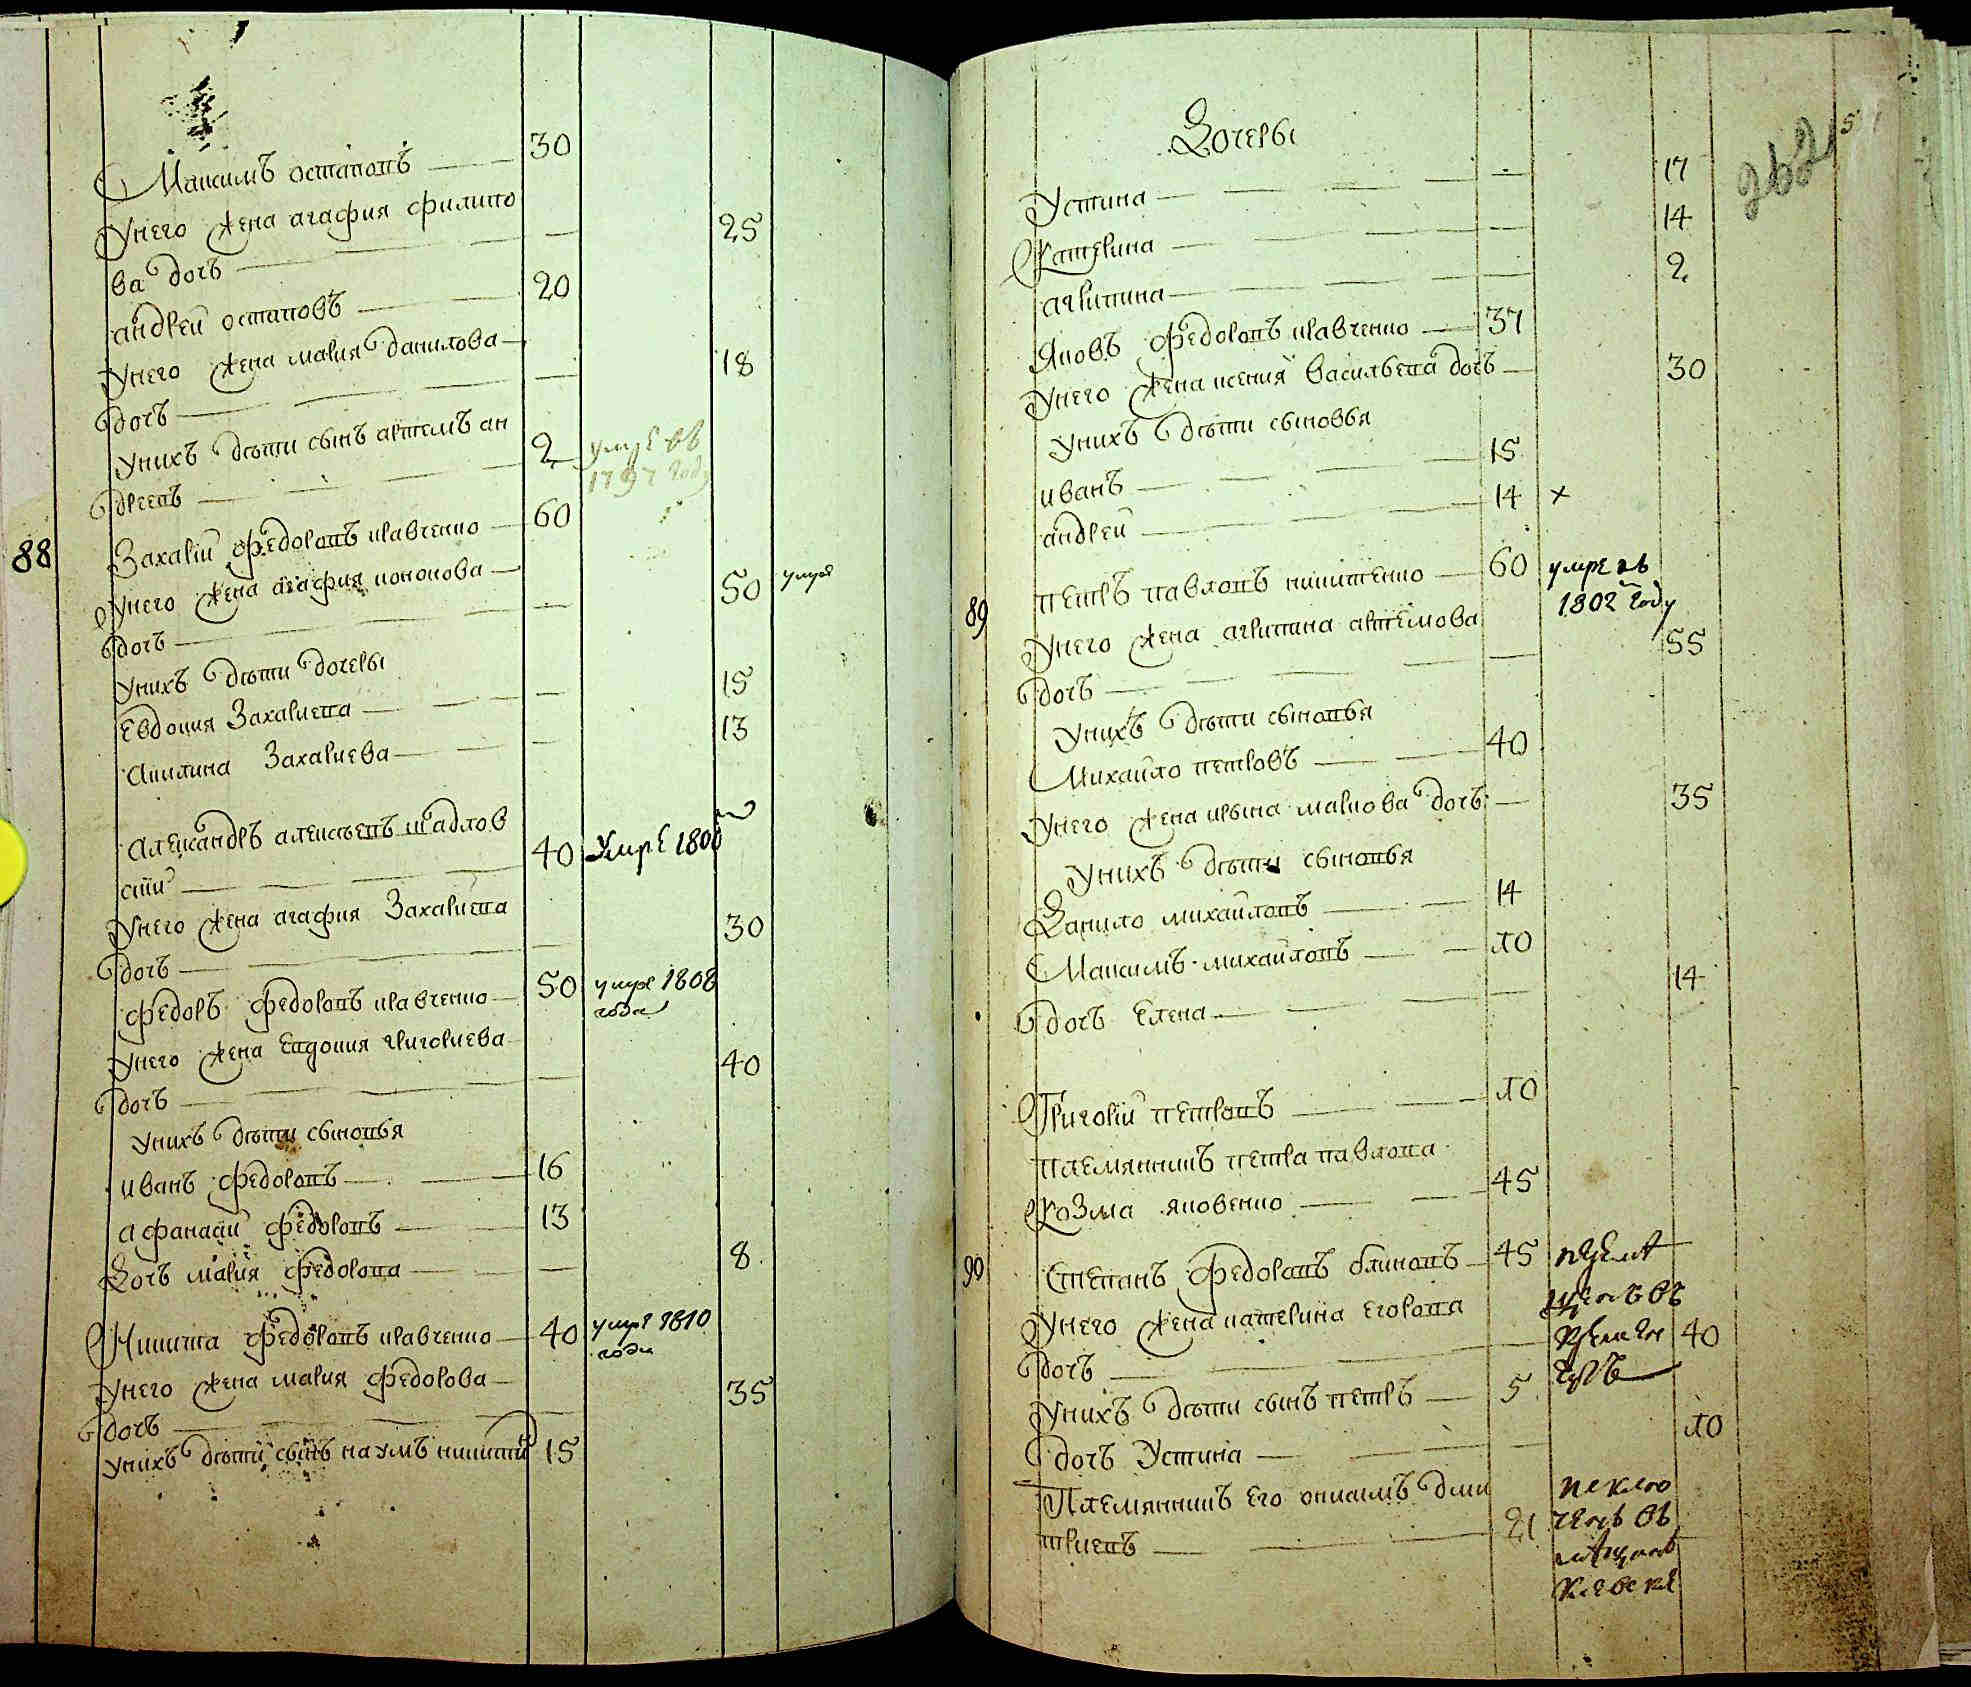 Максимъ остаповъ 30
Унего жена агафия филипо
ва дочь 25
андрей остаповъ 20
Унего жена мария данилова
дочь 18
Унихъ дѣти сынъ артемъ ан
дреевъ 2 умре въ
1797 году
88 Захарій Федоровъ кравченко 60
Унего жена агафия кононова
дочь 50 умре
Унихъ дѣти дочеры
Евдокия Захариева 15
Акилина Захариева 13
Александръ алексѣевъ шадлов
скій 40 Умре 1800
Унего жена агафия Захариева
дочь 30
Федоръ Федоровъ кравченко 50 умре 1808
года
Унего жена Евдокия григориева
дочь 40
Унихъ дѣти сыновья
иванъ Федоровъ 16
афанасій Федоровъ 13
Дочь мария Федорова 8
Никита Федоровъ кравченко 40 умре 1810
года
Унего жена мария Федорова
дочь 35
Унихъ дѣти сынъ наумъ никити 15
Дочеры
Устина 17
Катерина 14
агрипина 2
Яковъ Федоровъ кравченко 37
Унего жена ксения васильева дочь 30
Унихъ дѣти сыновья
иванъ 15
андрей 14 х
89 петръ павловъ никитенко 60 умре въ
1802 году
Унего жена агрипина артемова
дочь 55
Унихъ дѣти сыновья
Михайло петровъ 40
Унего жена ирына маркова дочь 35
Унихъ дѣти сыновья
Данило михайловъ 14
Максимъ михайловъ 10
дочь Елена 14
Григорій петровъ 10
племянникъ петра павлова
Козма яковенко 45
90 Степанъ Федоровъ блиновъ 45
Унего жена катерина Егорова
дочь 40
Унихъ дѣти сынъ петръ 5
дочь Устина 10
Племянникъ Его якимъ дми
триевъ 21